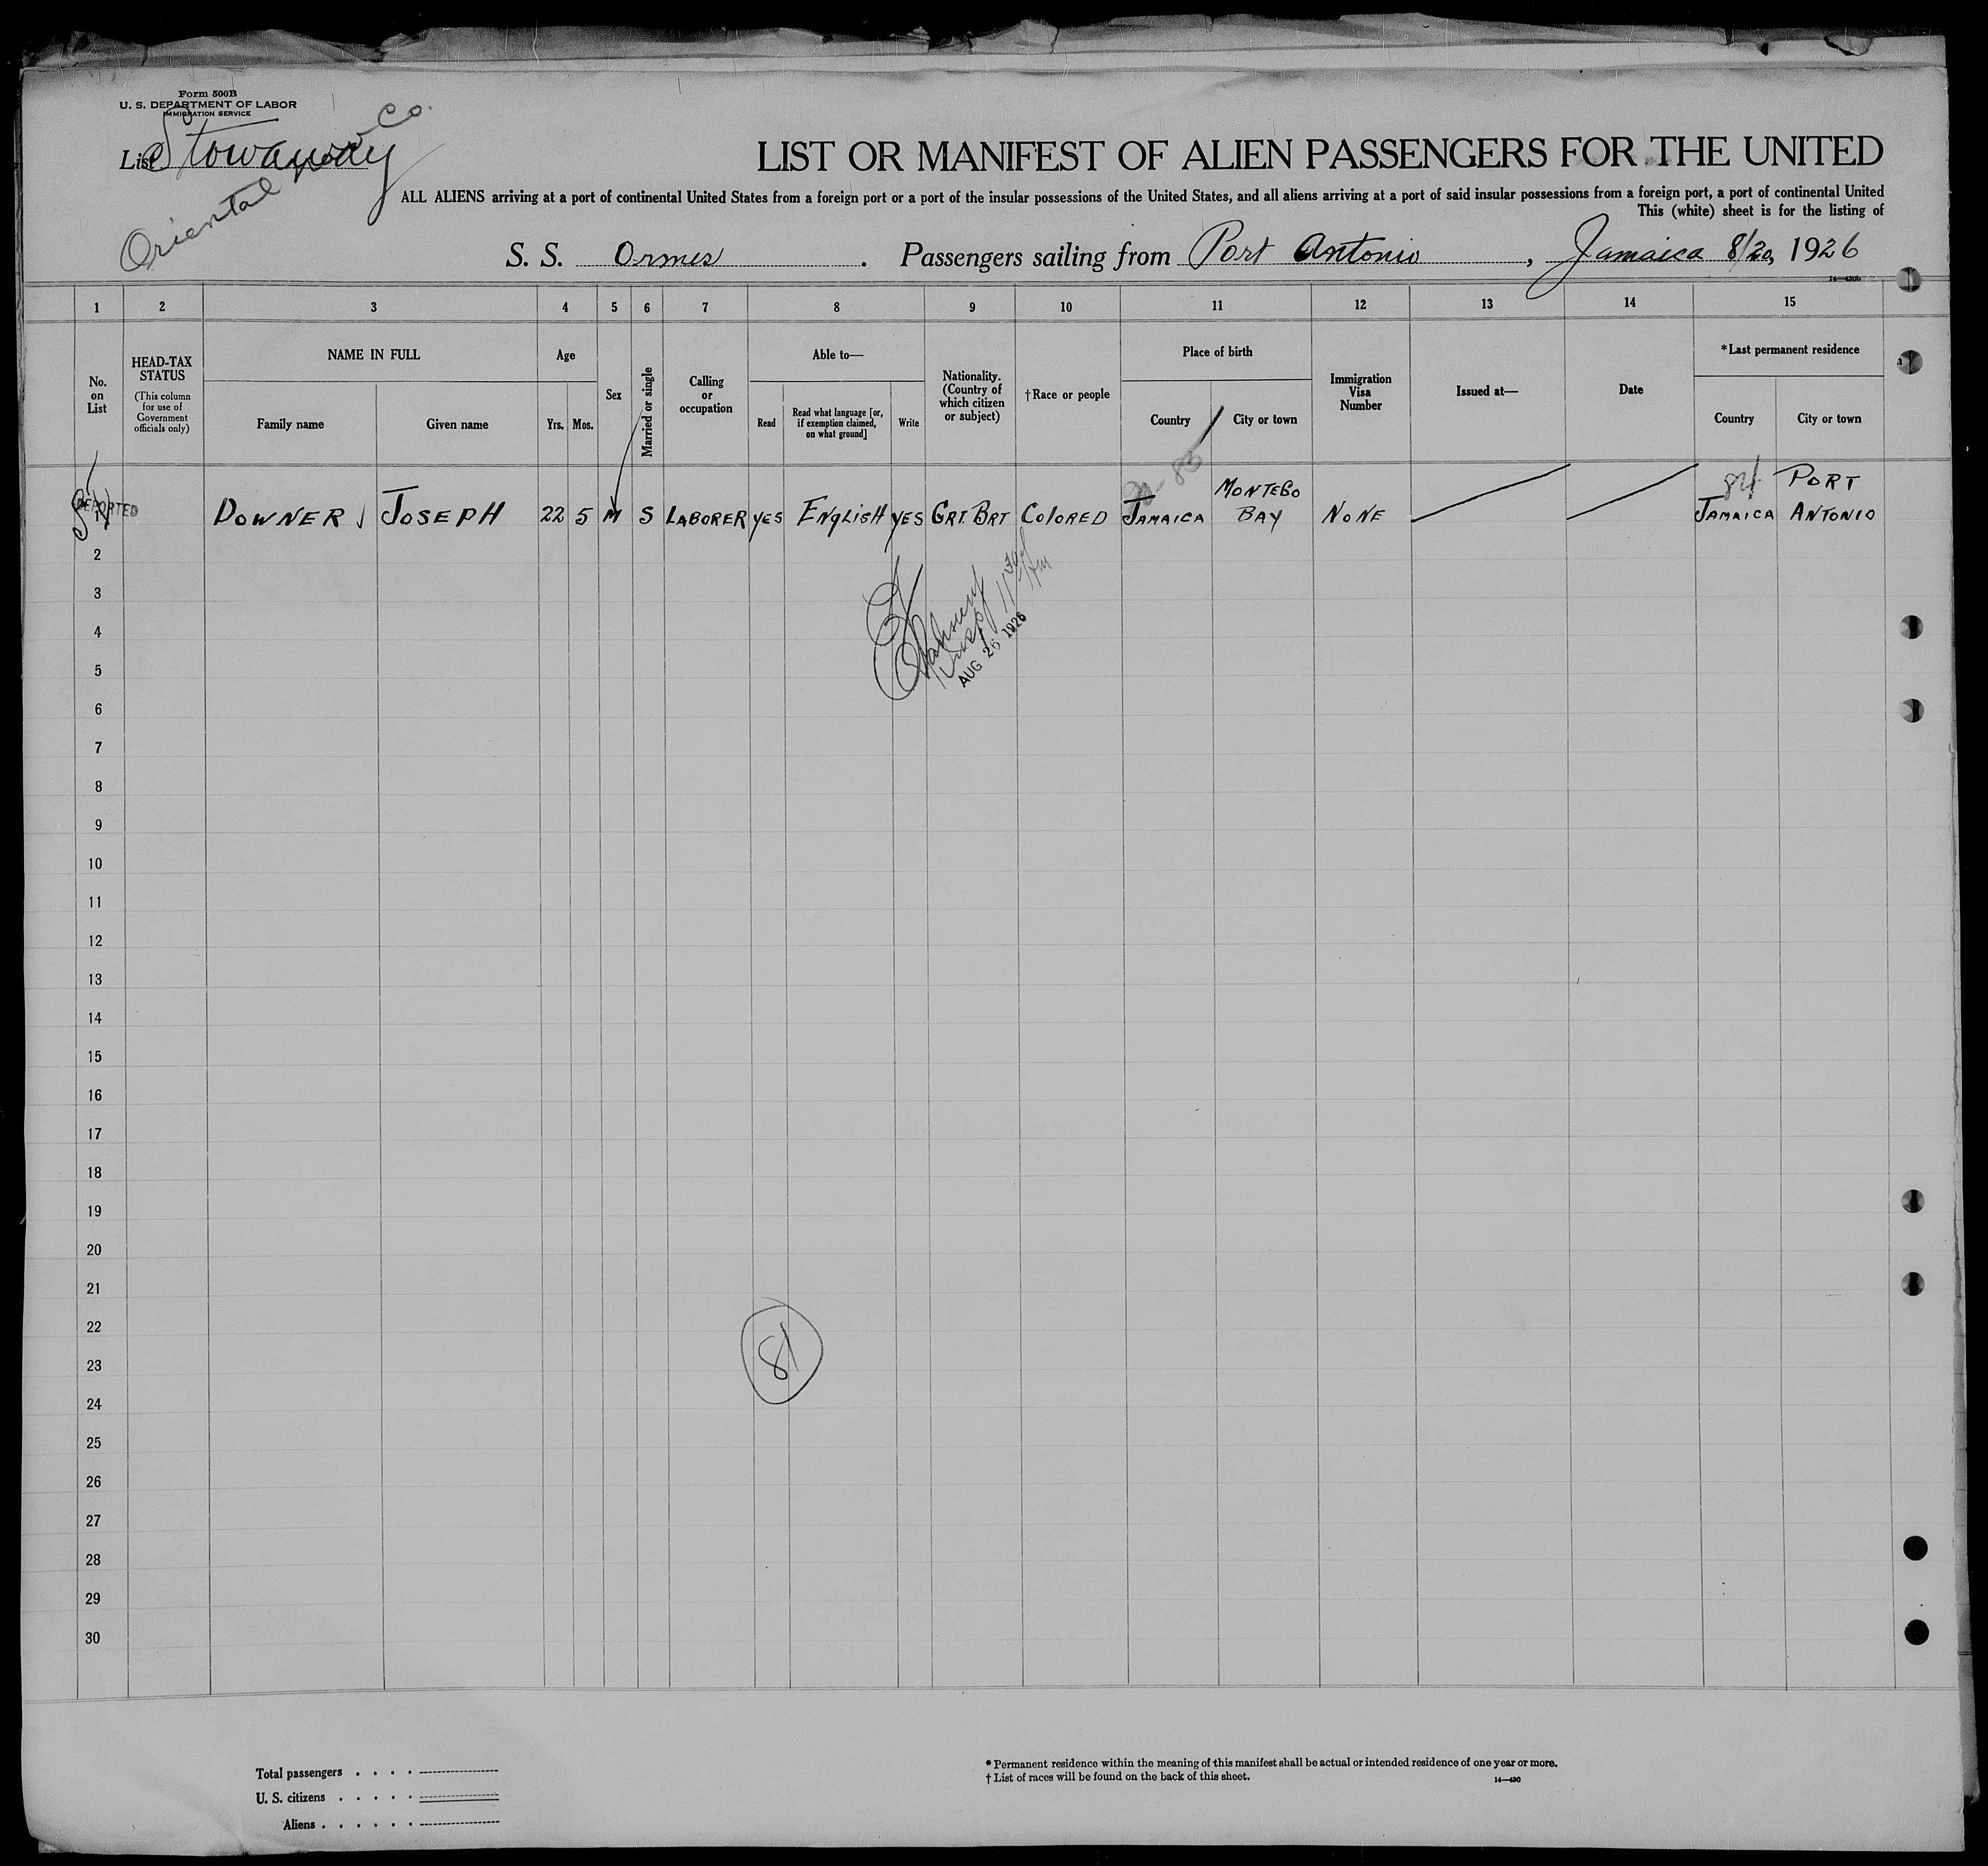 Form 500B
U. S. DEPARTMENT OF LABOR
IMMIGRATION SERVICE
List Stowaway
Oriental Nav Co.
LIST OR MANIFEST OF ALIEN PASSENGERS FOR THE UNITED
ALL ALIENS arriving at a port of continental United States from a foreign port or a port of the insular possessions of the United States, and all aliens arriving at a port of said insular possessions from a foreign port, a port of continental United
This (white) sheet is for the listing of
S. S. Ormes . Passengers sailing from Port Antonio , Jamaica 8/20, 1926
14—430b
1 2 3 4 5 6 7 8 9 10 11 12 13 14 15
No. on List
HEAD-TAX STATUS
(This column for use of Government officials only)
NAME IN FULL
Family name
Given name
Age
Yrs.
Mos.
Sex
Married or single
Calling or occupation
Able to—
Read
Read what language [or, if exemption claimed, on what ground]
Write
Nationality. (Country of which citizen or subject)
†Race or people
Place of birth
Country
City or town
Immigration Visa Number
Issued at—
Date
*Last permanent residence
Country
City or town
DEPORTED
1 DOWNER JOSEPH 22 5 M S LABORER YES ENGLISH YES GRT. BRT COLORED JAMAICA MONTEGO BAY NONE JAMAICA PORT ANTONIO
84
AUG 26 1926
2
3
4
5
6
7
8
9
10
11
12
13
14
15
16
17
18
19
20
21
22
23
24
25
26
27
28
29
30
81
Total passengers . . . .
U. S. citizens . . . . .
Aliens . . . . . .
* Permanent residence within the meaning of this manifest shall be actual or intended residence of one year or more.
† List of races will be found on the back of this sheet.
14—430